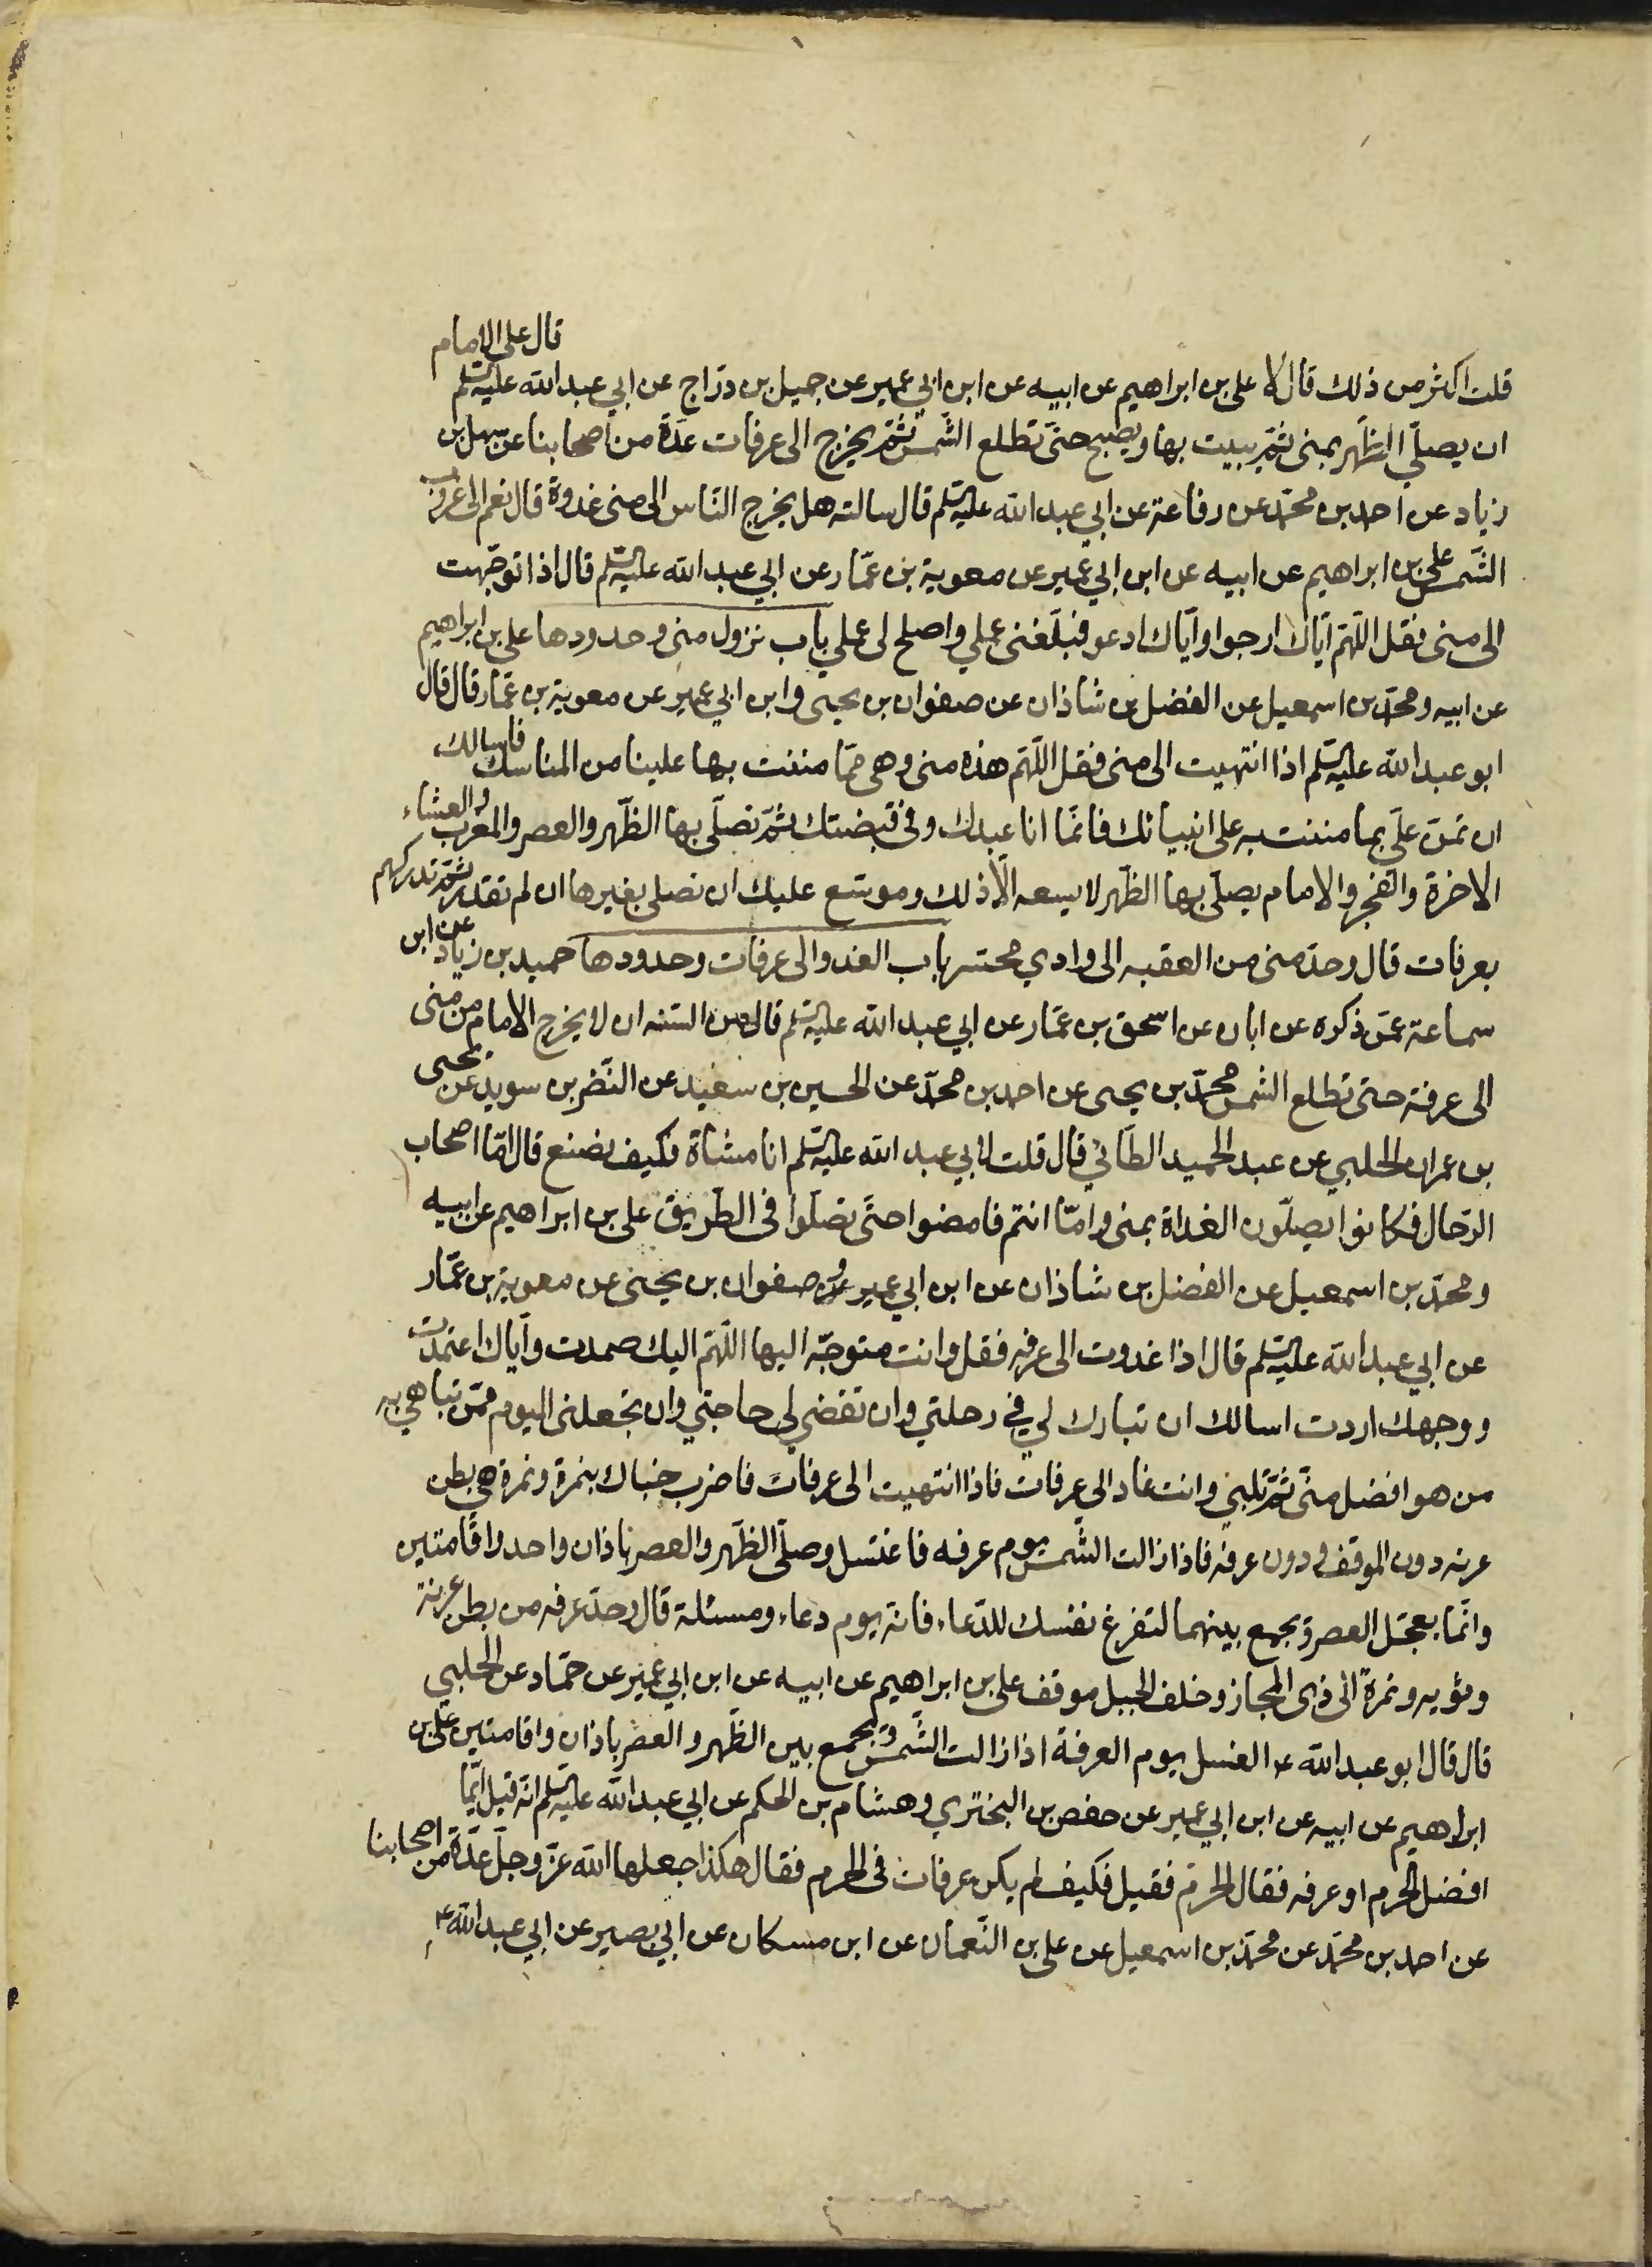 قلت اكثر من ذلك قال لا على بن ابراهيم عن ابيه عن ابن ابي عمير عن جميل بن درّاج عن ابي عبد الله عليه السلم قال على الامام
ان يصلّي الظهر بمنى ثمّ يبيت بها ويصبح حتّى تطلع الشّمس ثمّ يخرج الى عرفات عدّة من اصحابنا عن سهل بن
زياد عن احمد بن محمّد عن رفاعة عن ابي عبد الله عليه السلم قال سالته هل يخرج النّاس الى منى غدوة قال نعم الى غروب
الشّمس على بن ابراهيم عن ابيه عن ابن ابي عمير عن معوية بن عمّار عن ابي عبد الله عليه السلم قال اذا توجّهت
الى منى فقل اللّهمّ ايّاك ارجوا وايّاك ادعو فبلّغنى عملي واصلح لى عملي باب نزول منى وحدودها على بن ابراهيم
عن ابيه ومحمّد بن اسمعيل عن الفضل بن شاذان عن صفوان بن يحيى وابن ابي عمير عن معوية بن عمّار قال قال
ابو عبد الله عليه السلم اذا انتهيت الى منى فقل اللّهمّ هذه منى وهى ممّا مننت بها علينا من المناسك فاسالك
ان تمنّ علىّ بما مننت به على انبيائك فانّما انا عبدك وفي قبضتك ثمّ تصلّى بها الظّهر والعصر والمغرب والعشاء
الاخرة والفجر والامام يصلّى بها الظّهر لا يسعه الّا ذلك وموسّع عليك ان تصلى بغيرها ان لم تقدر ثمّ تدركهم
بعرفات قال وحدّ منى من العقبه الى وادي محسّر باب الغدو الى عرفات وحدودها حميد بن زياد عن ابن
سماعة عمّن ذكره عن ابان عن اسحق بن عمّار عن ابي عبد الله عليه السلم قال من السّنه ان لا يخرج الامام من منى
الى عرفة حتى تطلع الشمس محمّد بن يحيى عن احمد بن محمّد عن الحسين بن سعيد عن النّضر بن سويد عن يحيى
بن عمران الحلبي عن عبد الحميد الطّائي قال قلت لابي عبد الله عليه السلم انا مشاة فكيف نصنع قال امّا اصحاب
الرّحال فكانوا يصلّون الغداة بمنى وامّا انتم فامضوا حتّى تصلّوا فى الطّريق على بن ابراهيم عن ابيه
ومحمّد بن اسمعيل عن الفضل بن شاذان عن ابن ابي عمير وصفوان بن يحيى عن معوية بن عمّار
عن ابي عبد الله عليه السلم قال اذا غدوت الى عرفه فقل وانت متوجّه اليها اللّهمّ اليك صمدت وايّاك اعتمدت
ووجهك اردت اسالك ان تبارك لي في رحلتي وان تقضي لي حاجتي وان تجعلنى اليوم ممّن تباهي به
من هو افضل منّي ثمّ تلبّي وانت غاد الى عرفات فاذا انتهيت الى عرفات فاضرب خباك بنمرة ونمرة هي بطن
عرنه دون الموقف ودون عرفه فاذا زالت الشّمس يوم عرفه فاغتسل وصلّ الظّهر والعصر باذان واحد واقامتين
وانّما يعجّل العصر ويجمع بينهما لتفرغ نفسك للدّعاء فانّه يوم دعاء ومسئلة قال وحدّ عرفه من بطن عرنة
وثويه ونمرة الى ذى المجاز وخلف الجبل موقف على بن ابراهيم عن ابيه عن ابن ابي عمير عن حمّاد عن الحلبي
قال قال ابو عبد الله ع الغسل يوم العرفة اذا زالت الشّمس ويجمع بين الظّهر والعصر باذان واقامتين على بن
ابراهيم عن ابيه عن ابن ابي عمير عن حفص بن البختري وهشام بن الحكم عن ابي عبد الله عليه السلم انّه قيل ايّما
افضل الحرم او عرفه فقال الحرم فقيل فكيف لم يكن عرفات فى الحرم فقال هكذا جعلها الله عزّ وجلّ عدّة من اصحابنا
عن احمد بن محمّد عن محمّد بن اسمعيل عن على بن النّعمان عن ابن مسكان عن ابي بصير عن ابي عبد الله ع